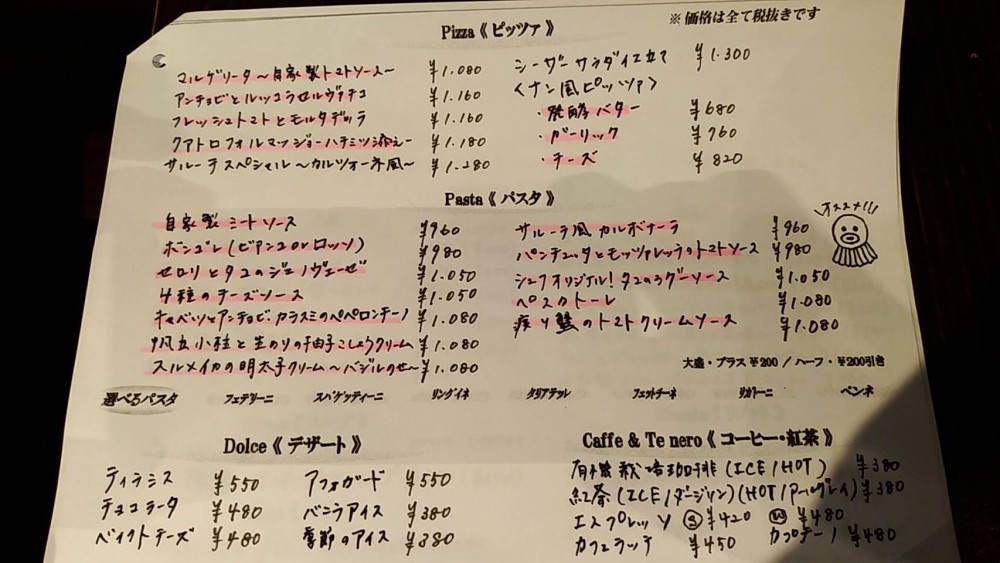 ※ 価格は全て税抜きです
Pizza《 ピッツァ 》
マルゲリータ〜自家製トマトソース〜 ¥1.080
アンチョビとルッコラセルヴァチコ ¥1.160
フレッシュトマトとモルタデッラ ¥1.160
クアトロフォルマッジョーハチミツ添えー ¥1.180
サルーテスペシャル〜カルツォーネ風〜 ¥1.280
シーザーサラダ仕立て ¥1.300
〈ナン風ピッツァ〉
・発酵バター ¥680
・ガーリック ¥760
・チーズ ¥820
Pasta《 パスタ 》
自家製ミートソース ¥960
ボンゴレ(ビアンコorロッソ) ¥980
セロリとタコのジェノヴェーゼ ¥1.050
4種のチーズソース ¥1.050
キャベツとアンチョビ、カラスミのペペロンチーノ ¥1.080
帆立小柱と生のりの柚子こしょうクリーム ¥1.080
スルメイカの明太子クリーム〜バジルのせ〜 ¥1.080
サルーテ風カルボナーラ ¥960
パンチェッタとモッツァレッラのトマトソース ¥980
シェフオリジナル!タコのラグーソース ¥1.050
ペスカトーレ ¥1.080
渡り蟹のトマトクリームソース ¥1.080
オススメ!!!
大盛・プラス ¥200 / ハーフ・¥200引き
選べるパスタ フェデリーニ スパゲッティーニ リングイネ タリアテッレ フェットチーネ リガトーニ ペンネ
Dolce《 デザート 》
ティラミス ¥550
チョコラータ ¥480
ベイクトチーズ ¥480
アフォガード ¥550
バニラアイス ¥380
季節のアイス ¥380
Caffe & Te nero《 コーヒー・紅茶 》
有機栽培珈琲(ICE/HOT) ¥380
紅茶(ICE/ダージリン)(HOT/アールグレイ) ¥380
エスプレッソ Ⓢ ¥420 Ⓦ ¥480
カフェラッテ ¥450 カプチーノ ¥480